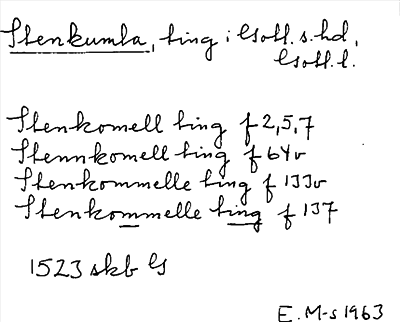 Stenkumla, ting i Gotl. s. hd,
Gotl. l.
Stenkomell ting f 2, 5, 7
Stennkomell ting f 64v
Stenkommelle ting f 133v
Stenkommelle ting f 137
1523 skb G
E. M-s 1963